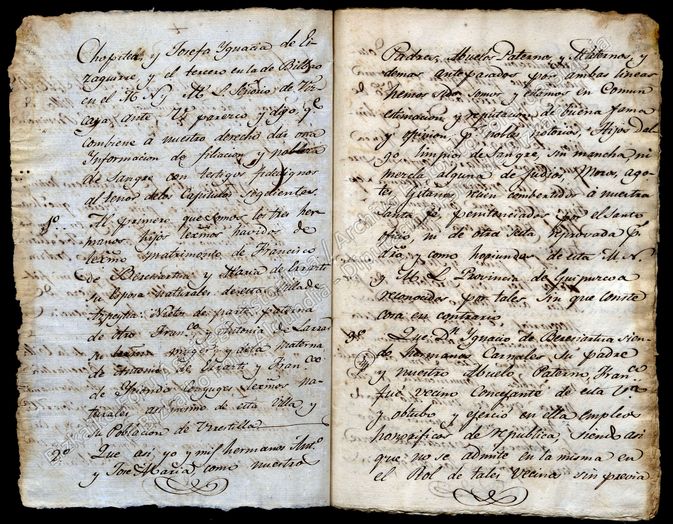 Chopitea, y Josefa Ignacia de Ei
zaguirre, y el tercero en la de Bilbao
en el M. N. y M. L. Señorio de Viz
caya ante V. parezco y digo, qe
combiene a nuestro derecho dar una
Informacion de filiacion, y nobleza
de Sangre con testigos fidedignos
al tenor de los Capitulos siguientes.
1º. Al primero que somos los tres her
manos hijos lexmos havidos de
lexmo matrimonio de Francisco
de Bereciartua y Maria de Lazarte
su Esposa naturales de esta Villa de
Azpeytia: Nietos de parte paterna
de otro Franco y Antonia de Larrar
su lexma muger: y de la materna
de Antonio de Lazarte y Franca
de conjuges lexmos na
turales asi mismo de esta Villa y
su Poblacion de Urrestilla
2º. Que asi, yo y mis hermanos Anto
y Jose Maria como nuestros
Padres, Abuelos Paternos y Maternos, y
demas antepasados por ambas lineas
hemos sido somos y estamos en Comun
estimacion y reputacion de buena fama
y opinion, y nobles notorios Hijos Dal
go limpios de sangre, sin mancha ni
mezcla alguna de judios, Moros, ago
tes, Gitanos recien combertidos a nuestra
Santa fe, penitenciados por el Santo
oficio, ni de otra secta reprovada pr
dro, y como oriundos de esta M. N.
y M. L. Provincia de Guipuzcoa
reconocidos por tales sin que conste
cosa en contrario
3º. Que Dn Ignacio de Bereciartua sien
do hermano Carnal de su padre
y nuestro Abuelo Paterno Franco
fué vecino Concejante de esta Va
y obtubo y ejercio en ella empleos
honorificos de republica, siendo asi
que no se admite en la misma en
el Rol de tales Vecinos sin previa